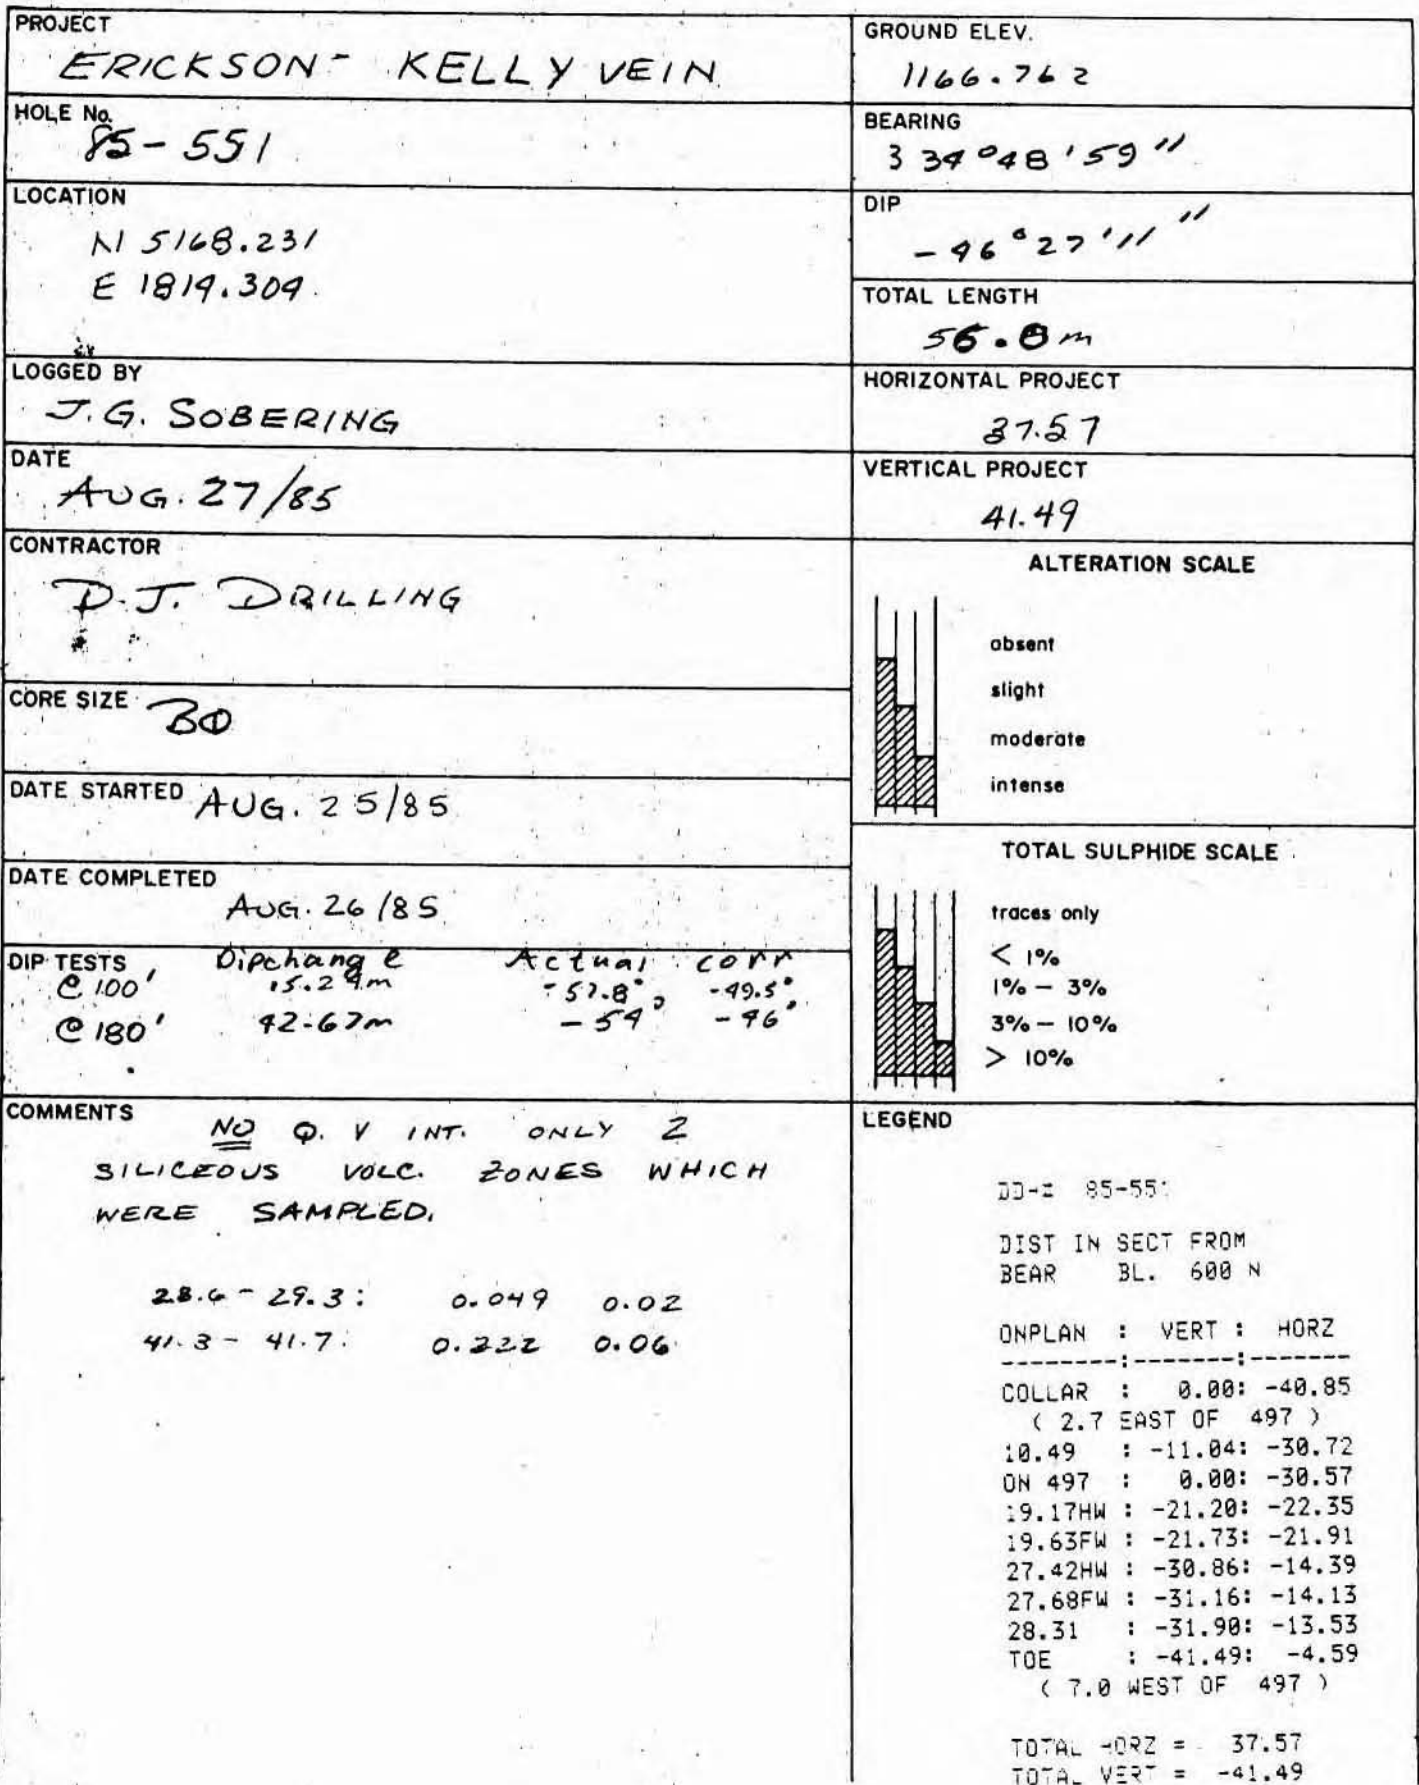 PROJECT
ERICKSON - KELLY VEIN
HOLE No.
85-551
LOCATION
N 5168.231
E 1819.304
LOGGED BY
J.G. SOBERING
DATE
AUG. 27/85
CONTRACTOR
D.J. DRILLING
CORE SIZE BQ
DATE STARTED AUG. 25/85
DATE COMPLETED
AUG. 26/85
DIP TESTS Dipchange Actual corr
@ 100' 15.24m -57.8° -49.5°
@ 180' 42.67m -54° -46°
COMMENTS
NO Q.V INT. ONLY 2
SILICEOUS VOLC. ZONES WHICH
WERE SAMPLED.
28.6 - 29.3: 0.049 0.02
41.3 - 41.7: 0.222 0.06
GROUND ELEV.
1166.762
BEARING
334°48'59"
DIP
-46°27'11"
TOTAL LENGTH
56.0m
HORIZONTAL PROJECT
37.57
VERTICAL PROJECT
41.49
ALTERATION SCALE
absent
slight
moderate
intense
TOTAL SULPHIDE SCALE
traces only
< 1%
1% - 3%
3% - 10%
> 10%
LEGEND
85-551
DIST IN SECT FROM
BEAR BL. 600 N
ONPLAN : VERT : HORZ
--------:-------:-------
COLLAR : 0.00: -40.85
( 2.7 EAST OF 497 )
10.49 : -11.04: -30.72
ON 497 : 0.00: -30.57
19.17HW : -21.20: -22.35
19.63FW : -21.73: -21.91
27.42HW : -30.86: -14.39
27.68FW : -31.16: -14.13
28.31 : -31.90: -13.53
TOE : -41.49: -4.59
( 7.0 WEST OF 497 )
TOTAL HORZ = 37.57
TOTAL VERT = -41.49